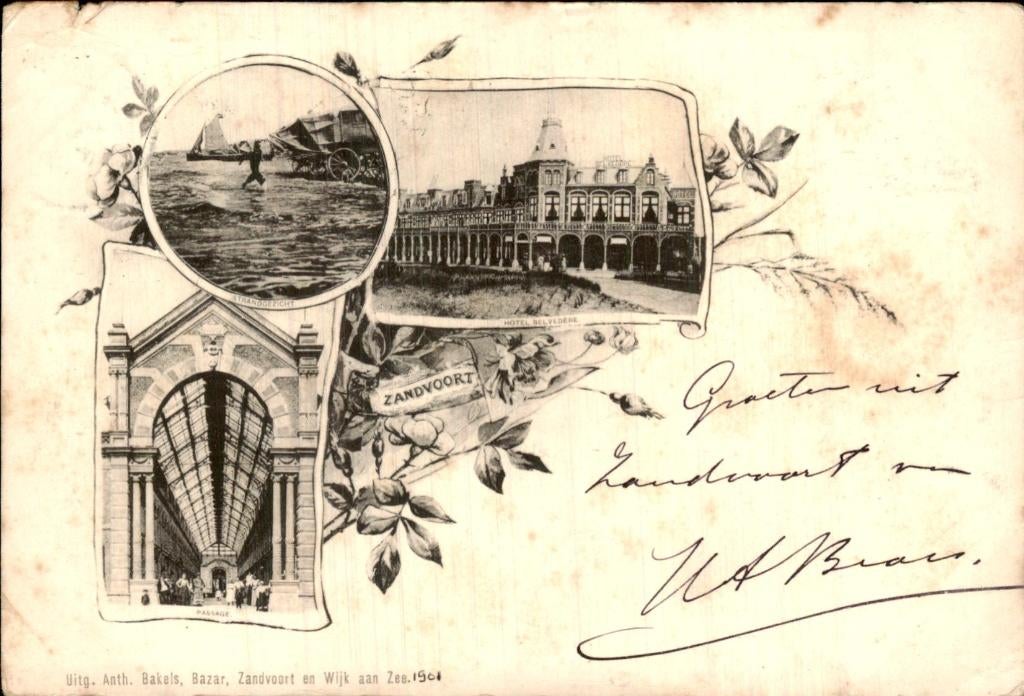 STRANDGEZICHT
HOTEL BELVEDERE
ZANDVOORT
PASSAGE
Groeten uit
Zandvoort van
Uitg. Anth. Bakels, Bazar, Zandvoort en Wijk aan Zee. 1901